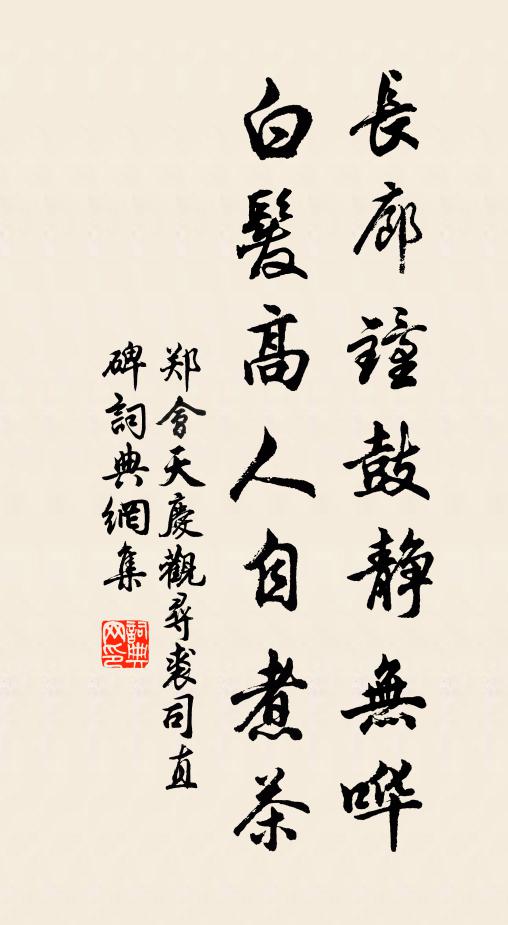 長廊鐘鼓静無哗
白髮高人自煮茶
郑會天慶觀尋裘司直
碑詞典網集
詞典
网印